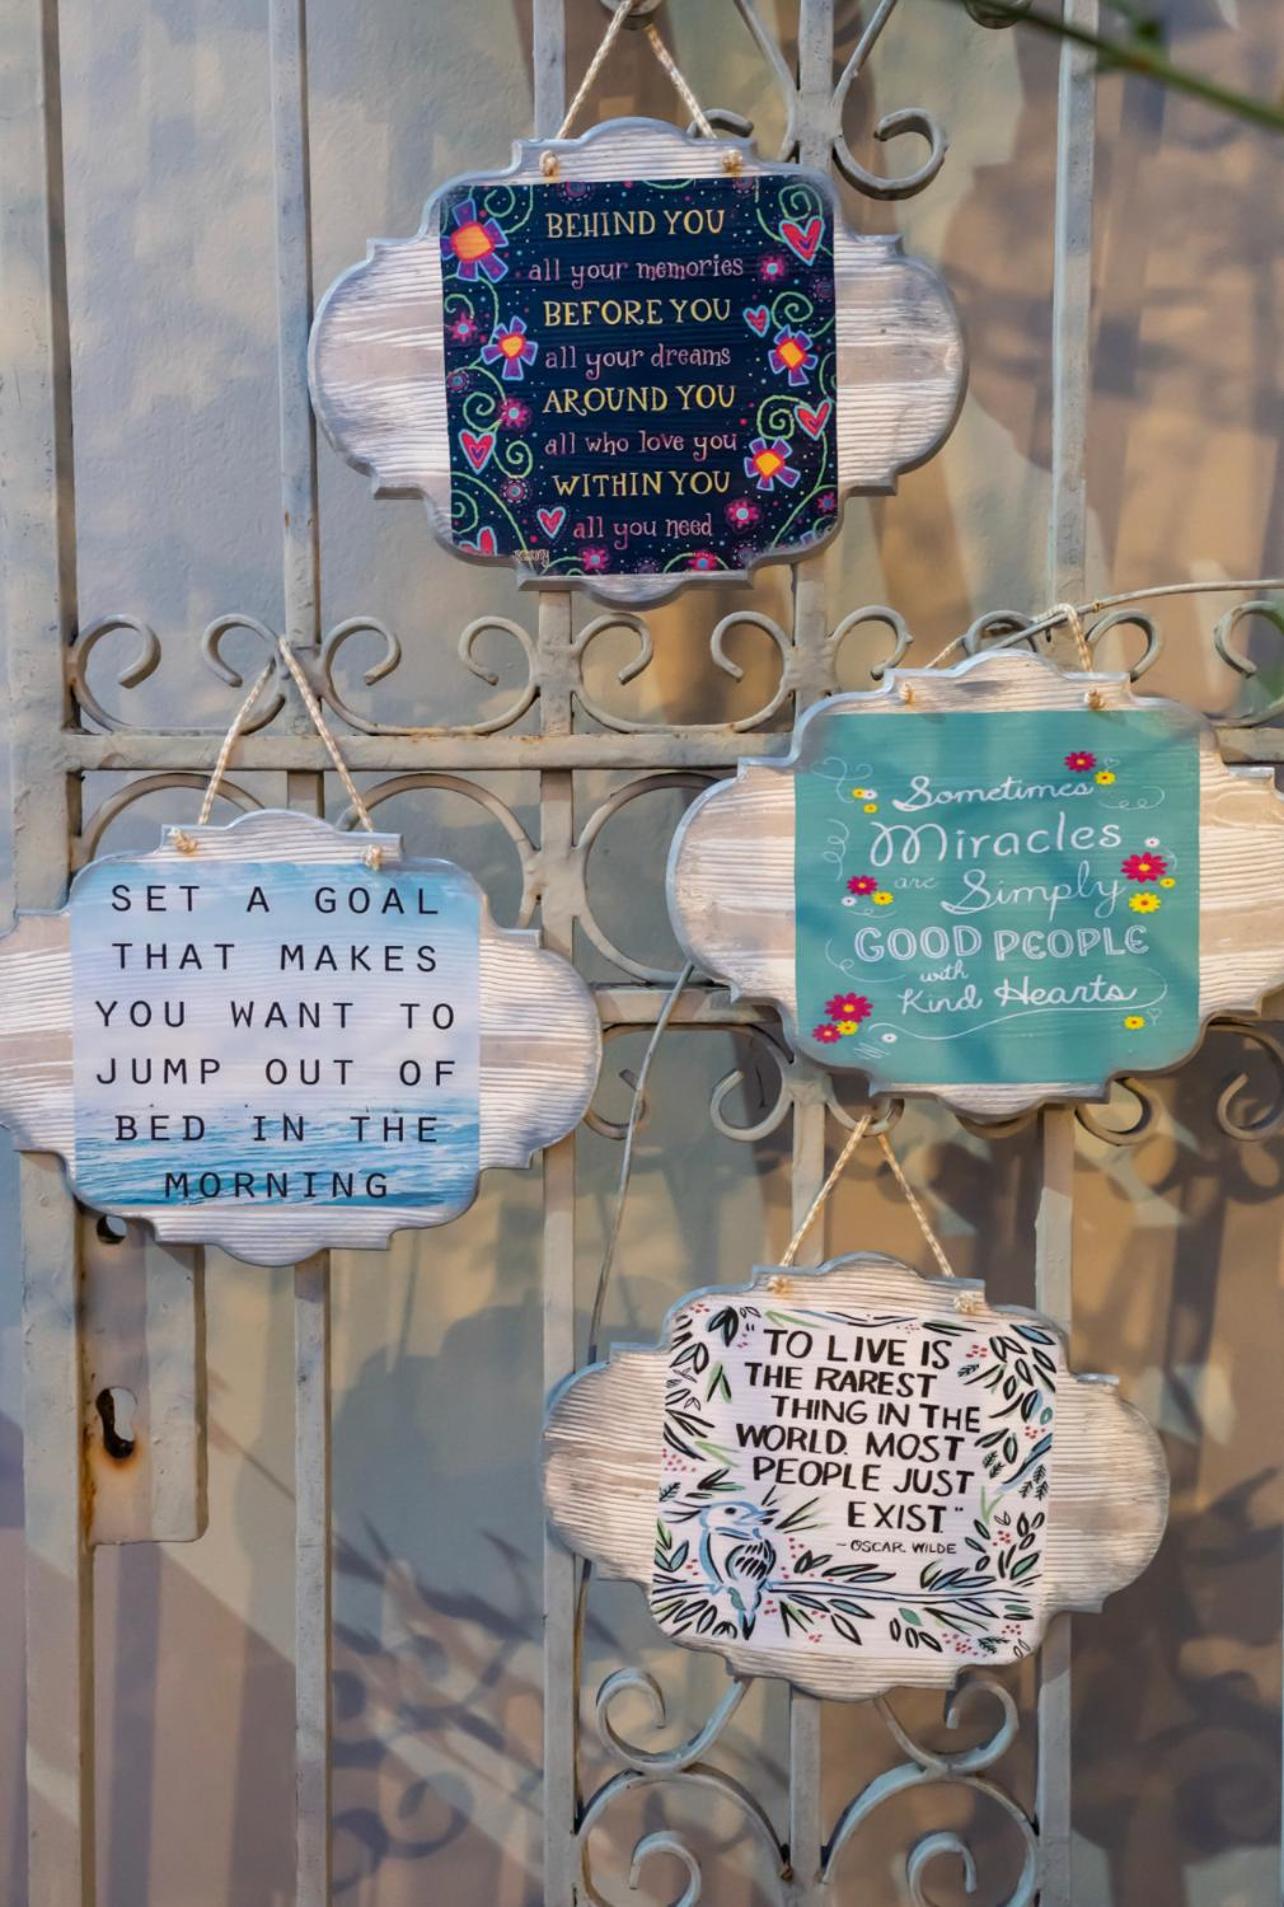 BEHIND YOU
all your memories
BEFORE YOU
all your dreams
AROUND YOU
all who love you
WITHIN YOU
all you need
SET A GOAL
THAT MAKES
YOU WANT TO
JUMP OUT OF
BED IN THE
MORNING
Sometimes
Miracles
are Simply
GOOD PEOPLE
with
Kind Hearts
"TO LIVE IS
THE RAREST
THING IN THE
WORLD. MOST
PEOPLE JUST
EXIST."
~OSCAR WILDE